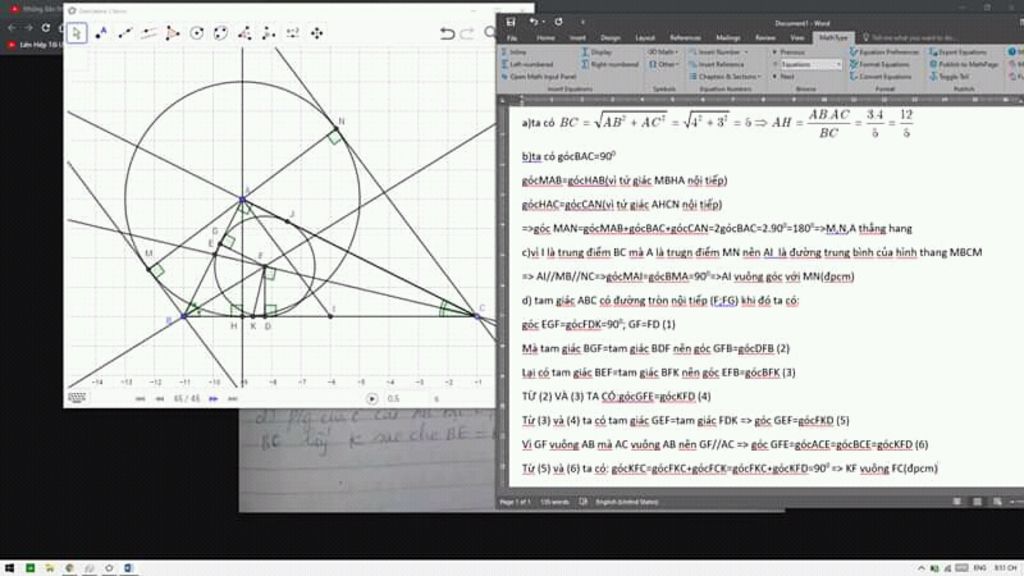 Document1 - Word
File Home Insert Design Layout References Mailings Review View MathType Tell me what you want to do...
Inline
Left-numbered
Open Math Input Panel
Display
Right-numbered
Insert Equations
Math
Other
Symbols
Insert Number
Insert Reference
Chapters & Sections
Equation Numbers
Previous
Equations
Next
Browse
Equation Preferences
Format Equations
Convert Equations
Format
Export Equations
Publish to MathPage
Toggle TeX
Publish
a)ta có BC = √(AB² + AC²) = √(4² + 3²) = 5 ⇒ AH = AB.AC/BC = 3.4/5 = 12/5
b)ta có gócBAC=90⁰
gócMAB=gócHAB(vì tứ giác MBHA nội tiếp)
gócHAC=gócCAN(vì tứ giác AHCN nội tiếp)
=>góc MAN=gócMAB+gócBAC+gócCAN=2gócBAC=2.90⁰=180⁰=>M,N,A thẳng hang
c)vì I là trung điểm BC mà A là trugn điểm MN nên AI là đường trung bình của hình thang MBCM
=> AI//MB//NC=>gócMAI=gócBMA=90⁰=>AI vuông góc với MN(đpcm)
d) tam giác ABC có đường tròn nội tiếp (F;FG) khi đó ta có:
góc EGF=gócFDK=90⁰; GF=FD (1)
Mà tam giác BGF=tam giác BDF nên góc GFB=gócDFB (2)
Lại có tam giác BEF=tam giác BFK nên góc EFB=gócBFK (3)
TỪ (2) VÀ (3) TA CÓ:gócGFE=gócKFD (4)
Từ (3) và (4) ta có tam giác GEF=tam giác FDK => góc GEF=gócFKD (5)
Vì GF vuông AB mà AC vuông AB nên GF//AC => góc GFE=gócACE=gócBCE=gócKFD (6)
Từ (5) và (6) ta có: gócKFC=gócFKC+gócFCK=gócFKC+gócKFD=90⁰ => KF vuông FC(đpcm)
N
A
J
G
E
M
F
B
H K D
I
C
-14 -13 -12 -11 -10 -9 -8 -7 -6 -5 -4 -3 -2 -1
45 / 45
0.5
s
BC lấy K sao cho BE =
Page 1 of 1 135 words English (United States)
ENG